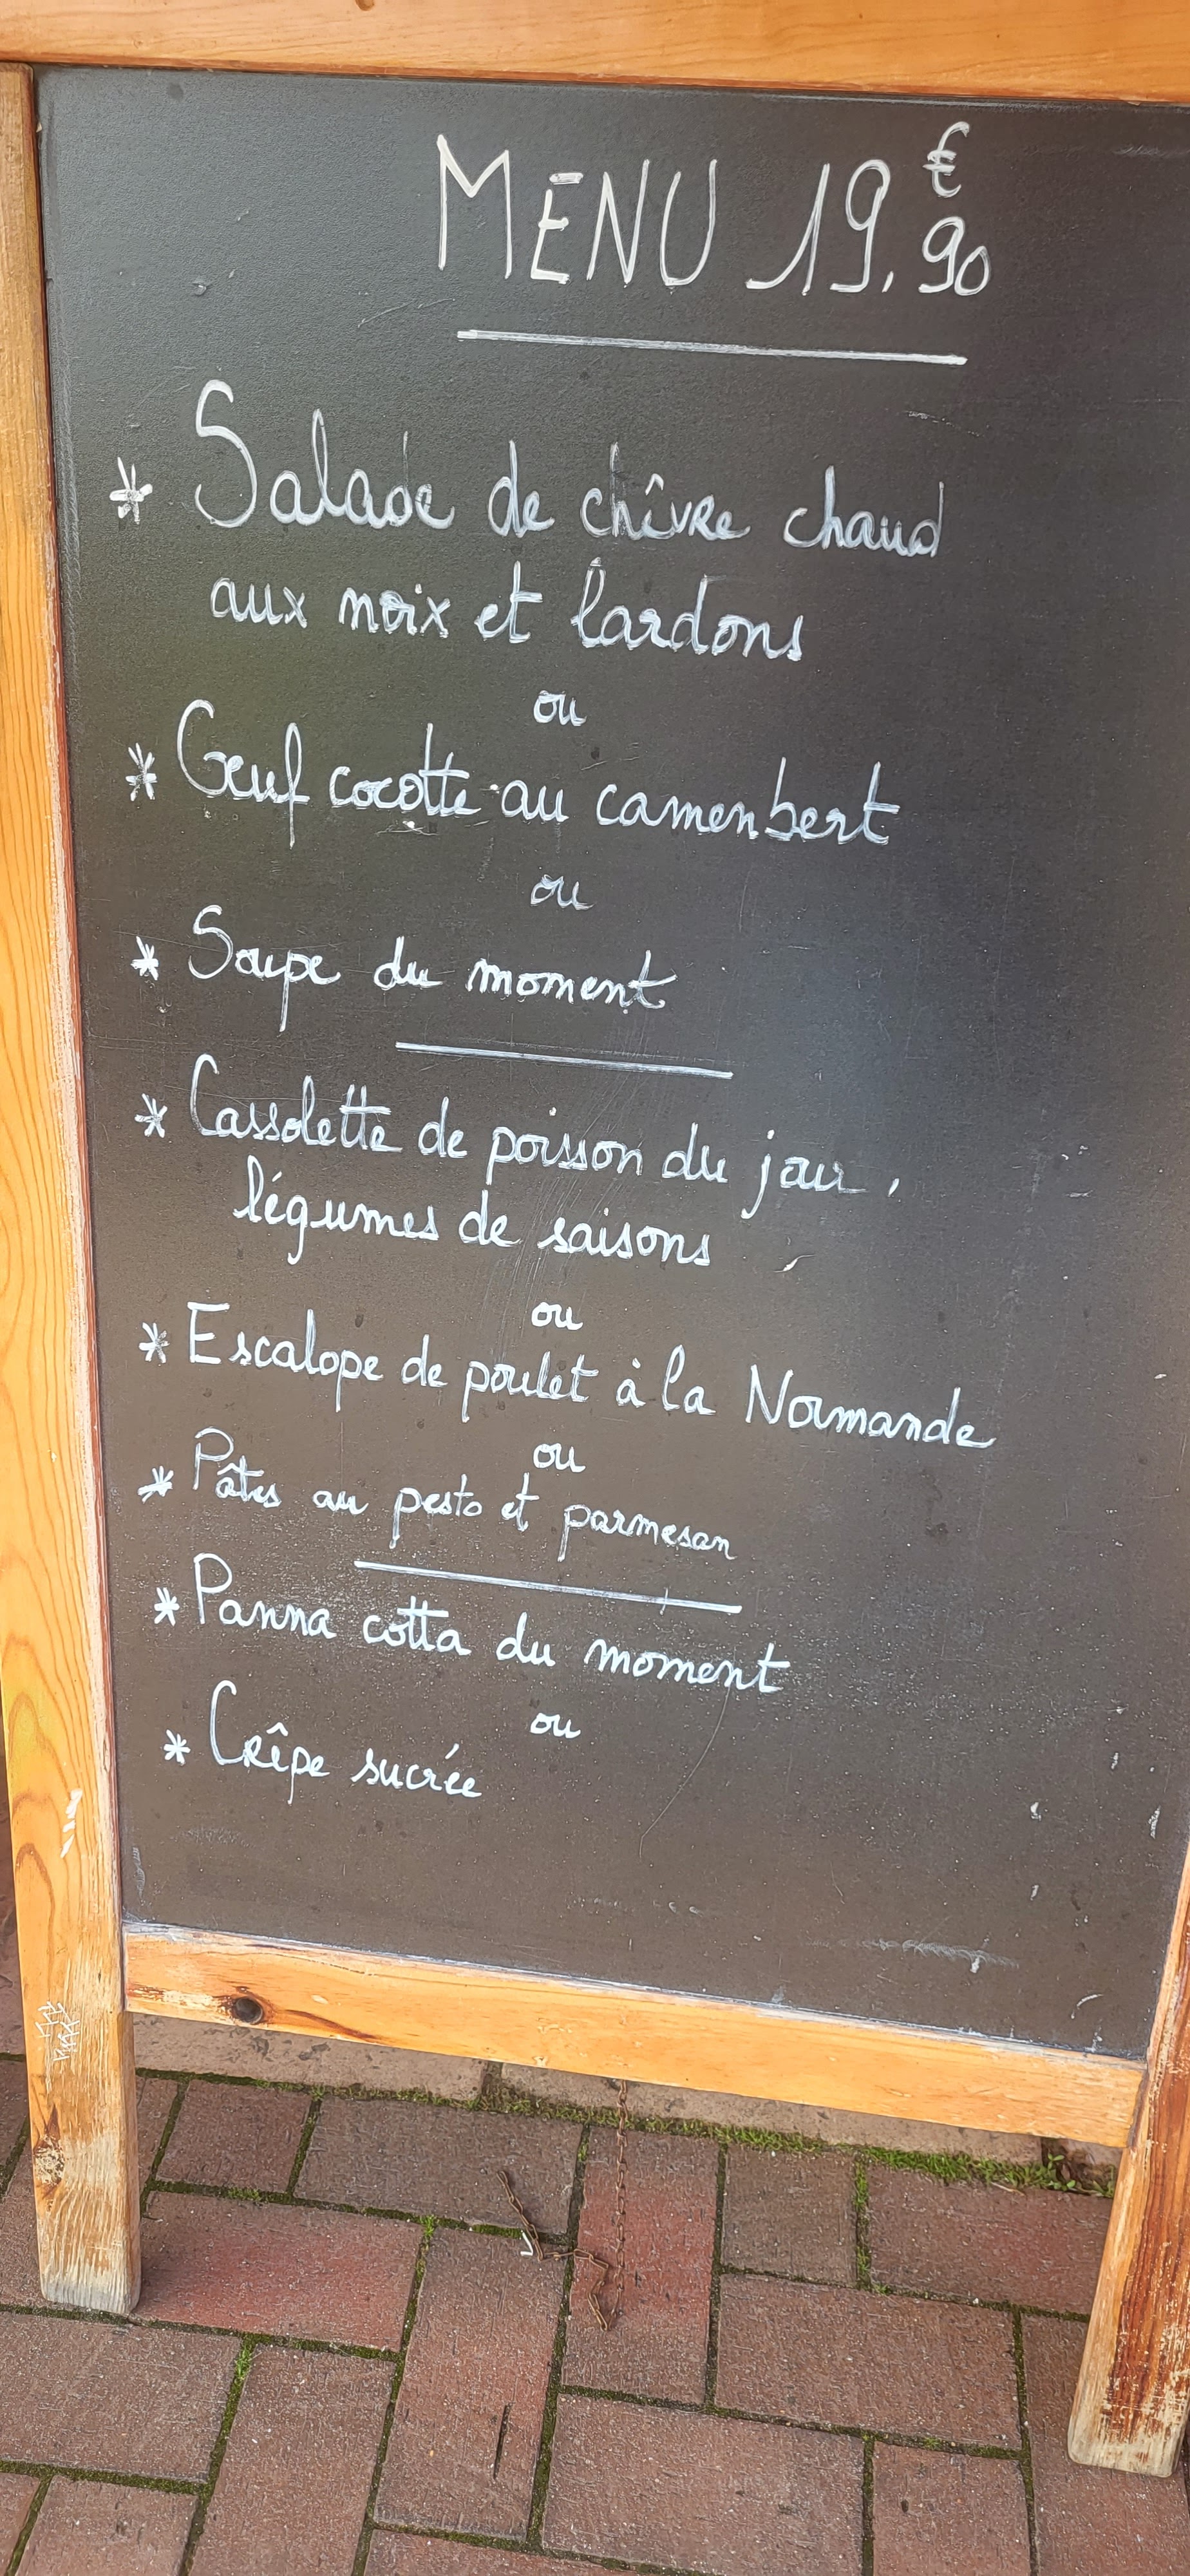 MENU 19,€90
* Salade de chîvre chaud
aux noix et lardons
ou
* Oeuf cocotte au camenbert
ou
* Soupe du moment
* Cassolette de poisson du jour,
légumes de saisons
ou
* Escalope de poulet à la Normande
ou
* Pâtes au pesto et parmesan
* Panna cotta du moment
ou
* Crêpe sucrée